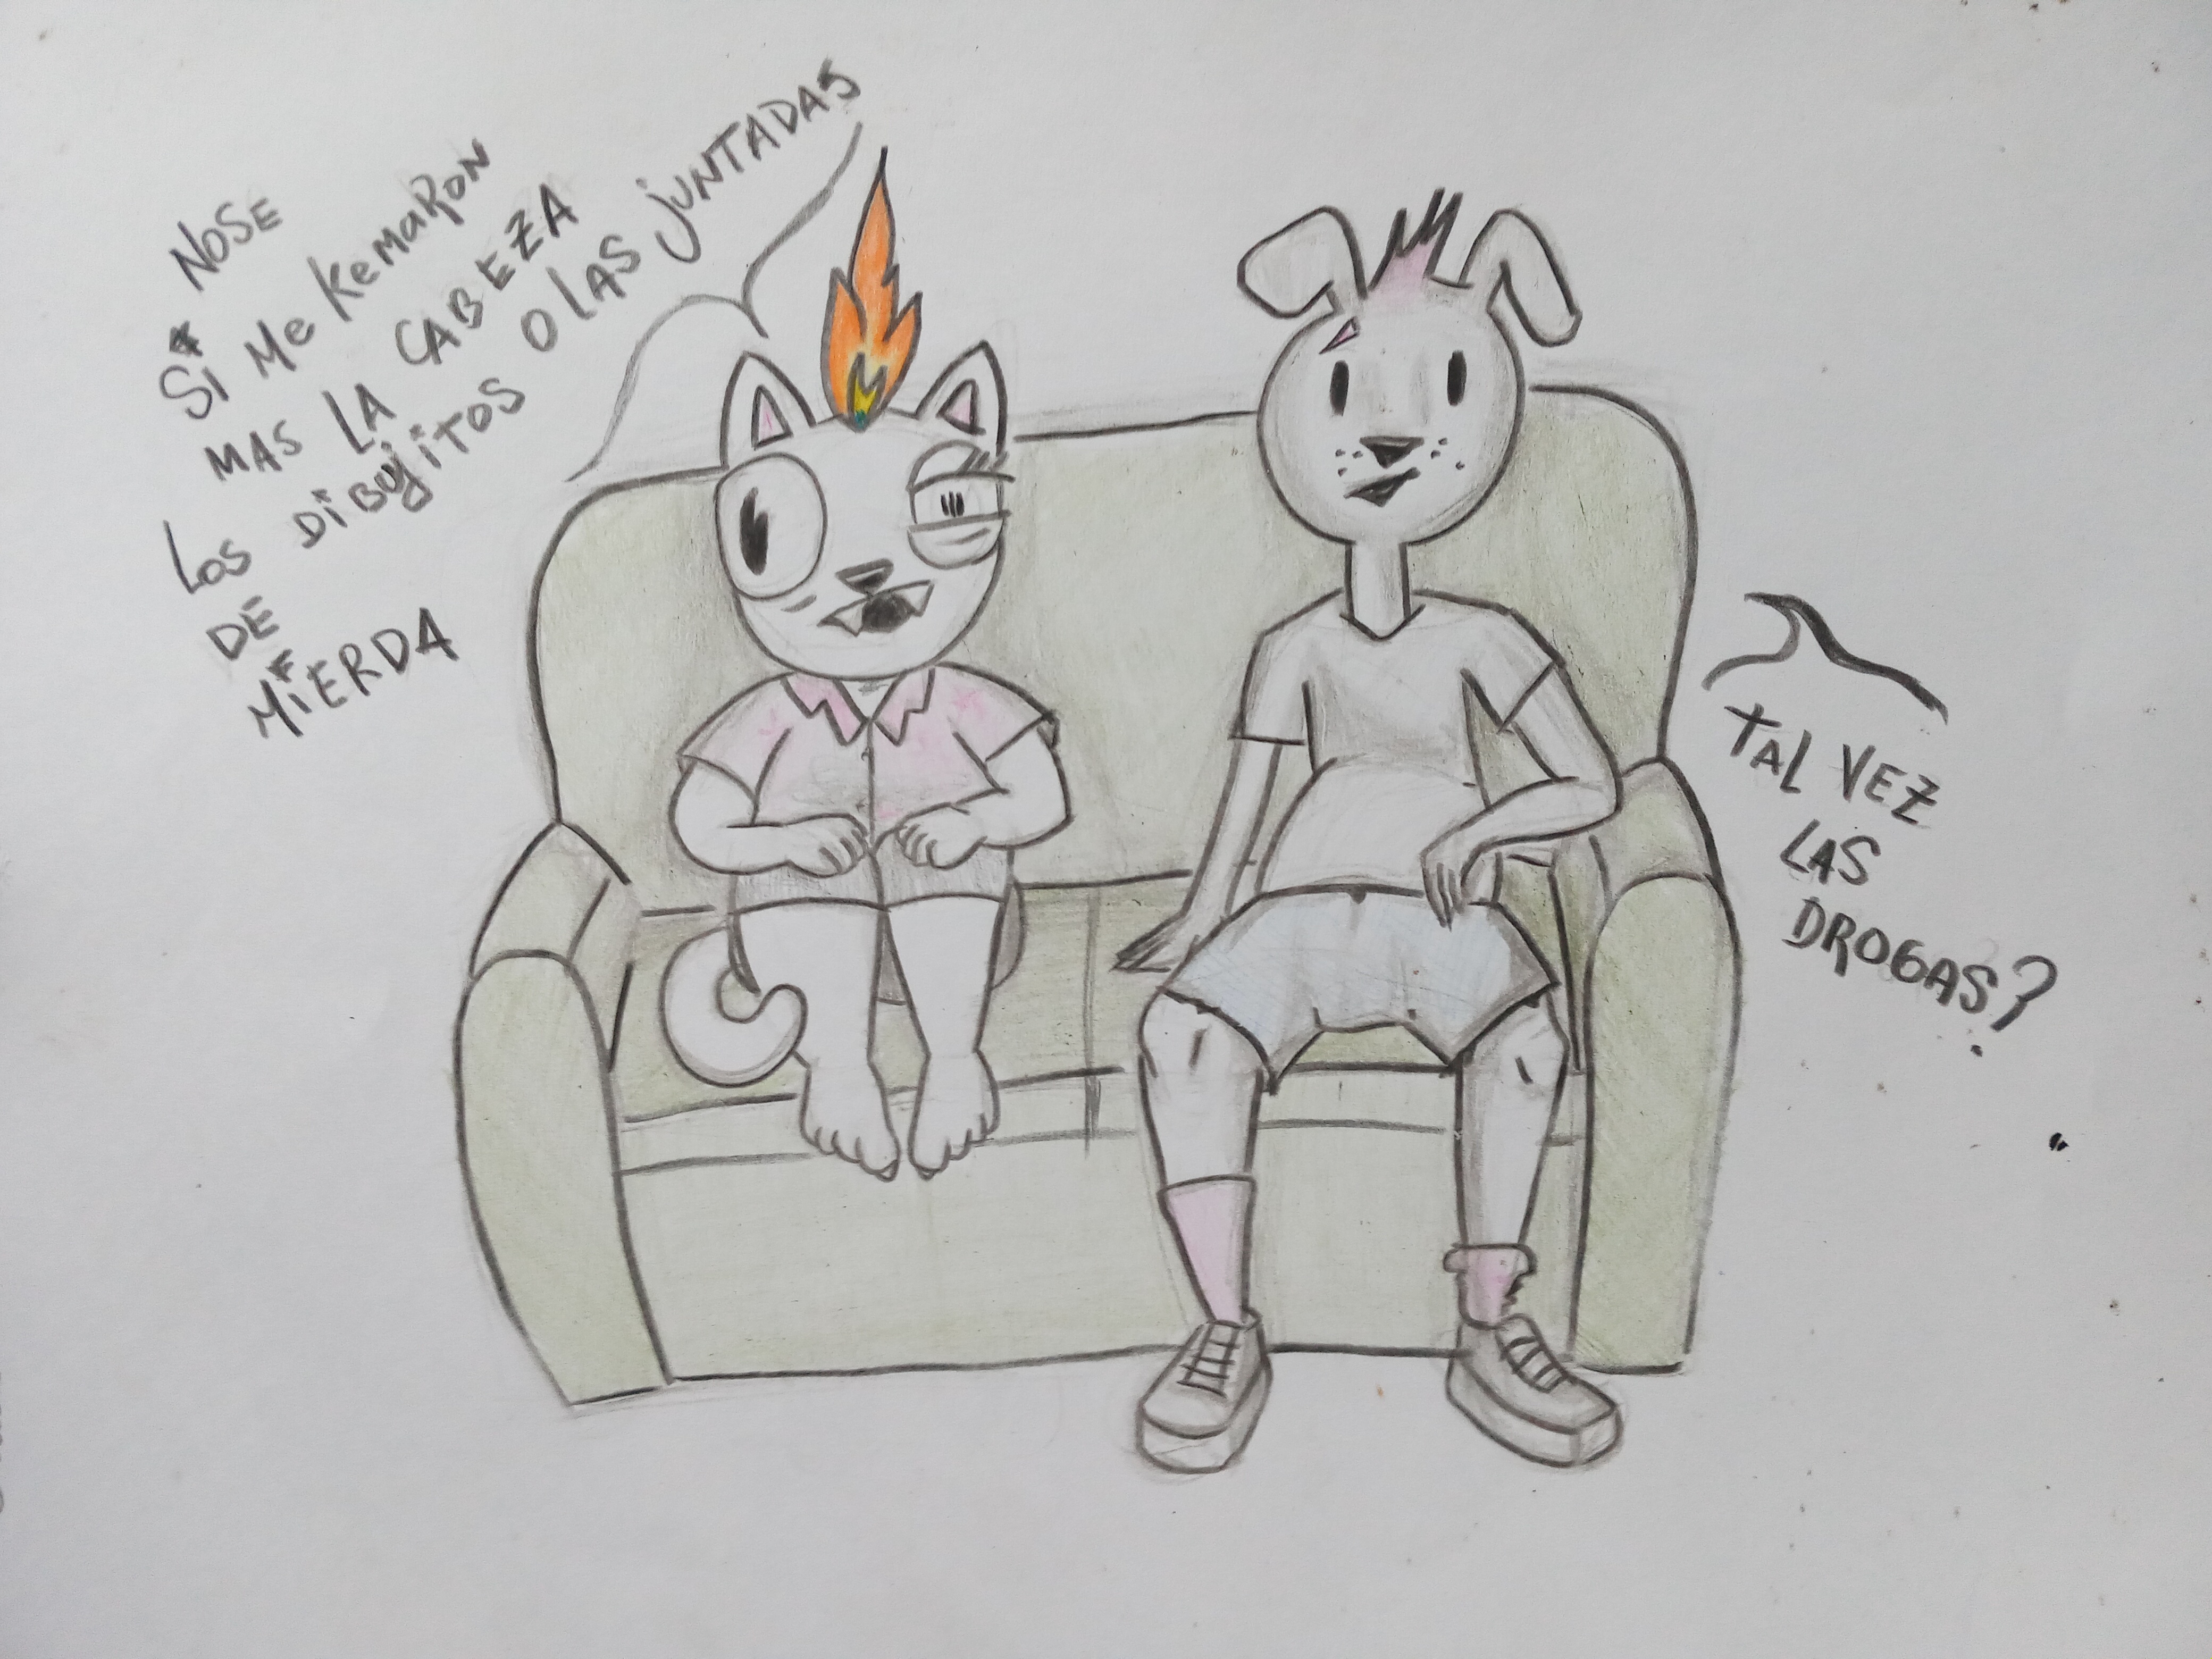 NOSE
Si Me KemaRON
MAS LA CABEZA
LOS DiBUjiTOS O LAS juNTADAS
DE
MiERDA
TAL VEZ
LAS
DROGAS?